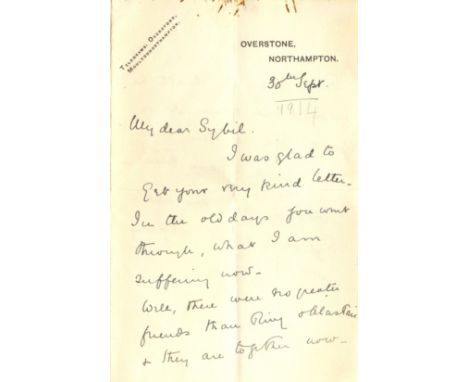 TELEGRAMS, OVERSTONE,
MOULTONNORTHAMPTON.
OVERSTONE,
NORTHAMPTON.
30th Sept.
1914
My dear Sybil.
I was glad to
Get your very kind letter.
In the old days you went
through, what I am
suffering now.
Well, there were no greater
friends than & Alastair
& they are together now.